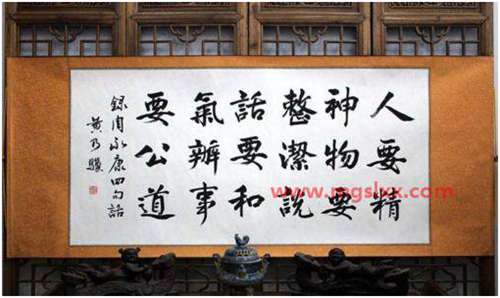 人要精
神物要
整潔說
話要和
氣辦事
要公道
録周永康四句話
黄乃
www.mgslxx.com